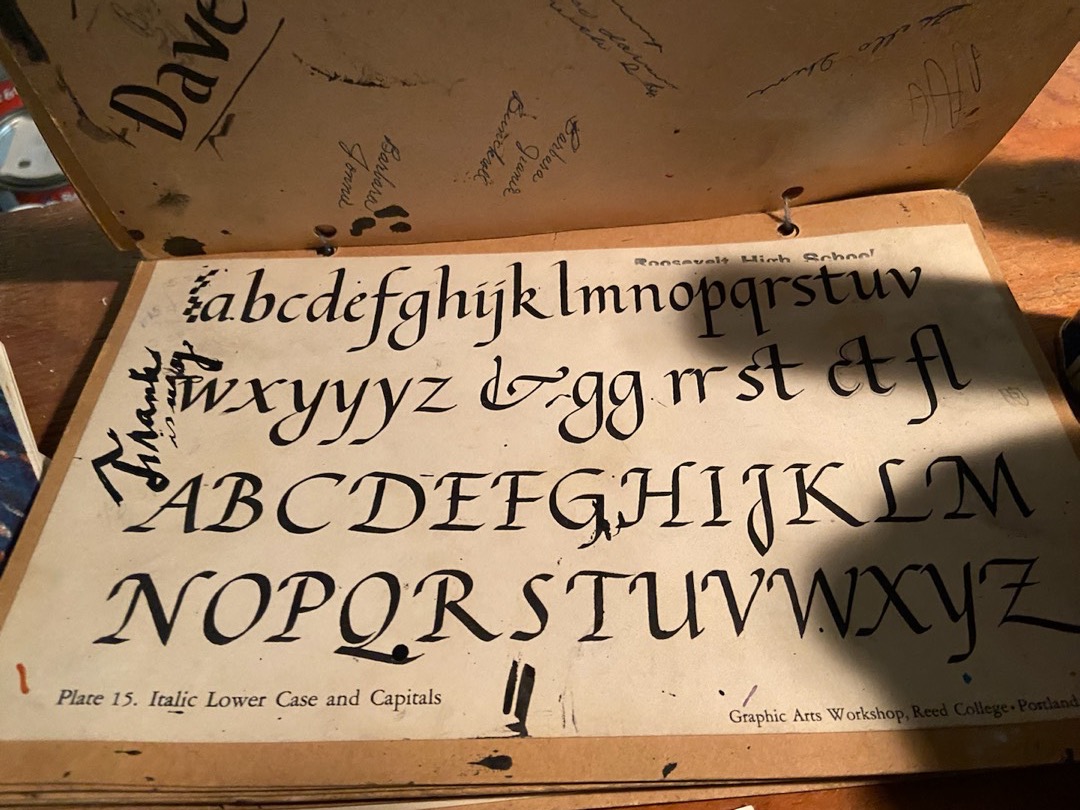 Dave
Barbara
Roosevelt High School
abcdefghijklmnopqrstuv
wxyyyz & gg rr st ct fl
Frank
is
ABCDEFGHIJKLM
NOPQRSTUVWXYZ
Plate 15. Italic Lower Case and Capitals
Graphic Arts Workshop, Reed College • Portland